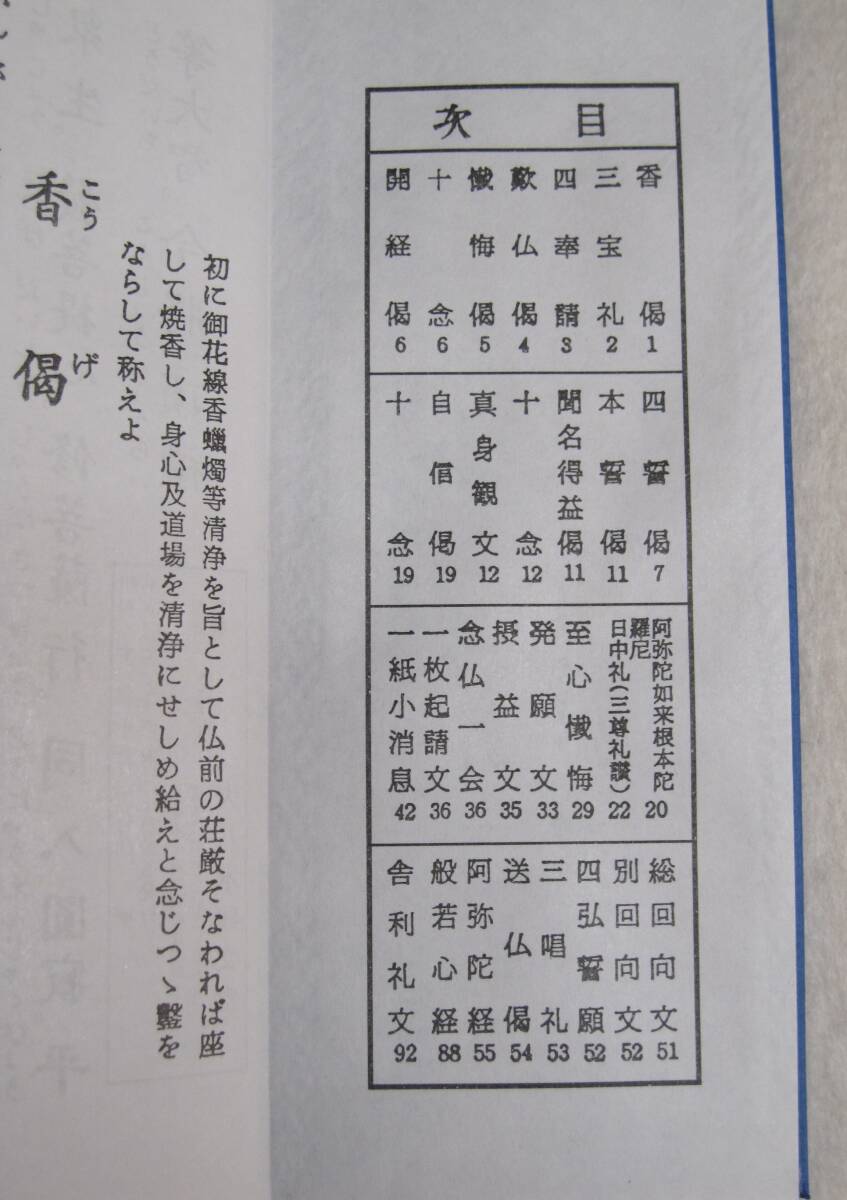 目次
香偈 1
三宝礼 2
四奉請 3
歎仏偈 4
懺悔偈 5
十念 6
開経偈 6
四誓偈 7
本誓偈 11
聞名得益偈 11
十念 12
真身観文 12
自信偈 19
十念 19
阿弥陀如来根本陀
羅尼 20
日中礼(三尊礼讃) 22
至心懺悔 29
発願文 33
摂益文 35
念仏一会 36
一枚起請文 36
一紙小消息 42
総回向文 51
別回向文 52
四弘誓願 52
三唱礼 53
送仏偈 54
阿弥陀経 55
般若心経 88
舎利礼文 92
初に御花線香蠟燭等清浄を旨として仏前の荘厳そなわれば座
して焼香し、身心及道場を清浄にせしめ給えと念じつゝ鑿を
ならして称えよ
香偈
こうげ